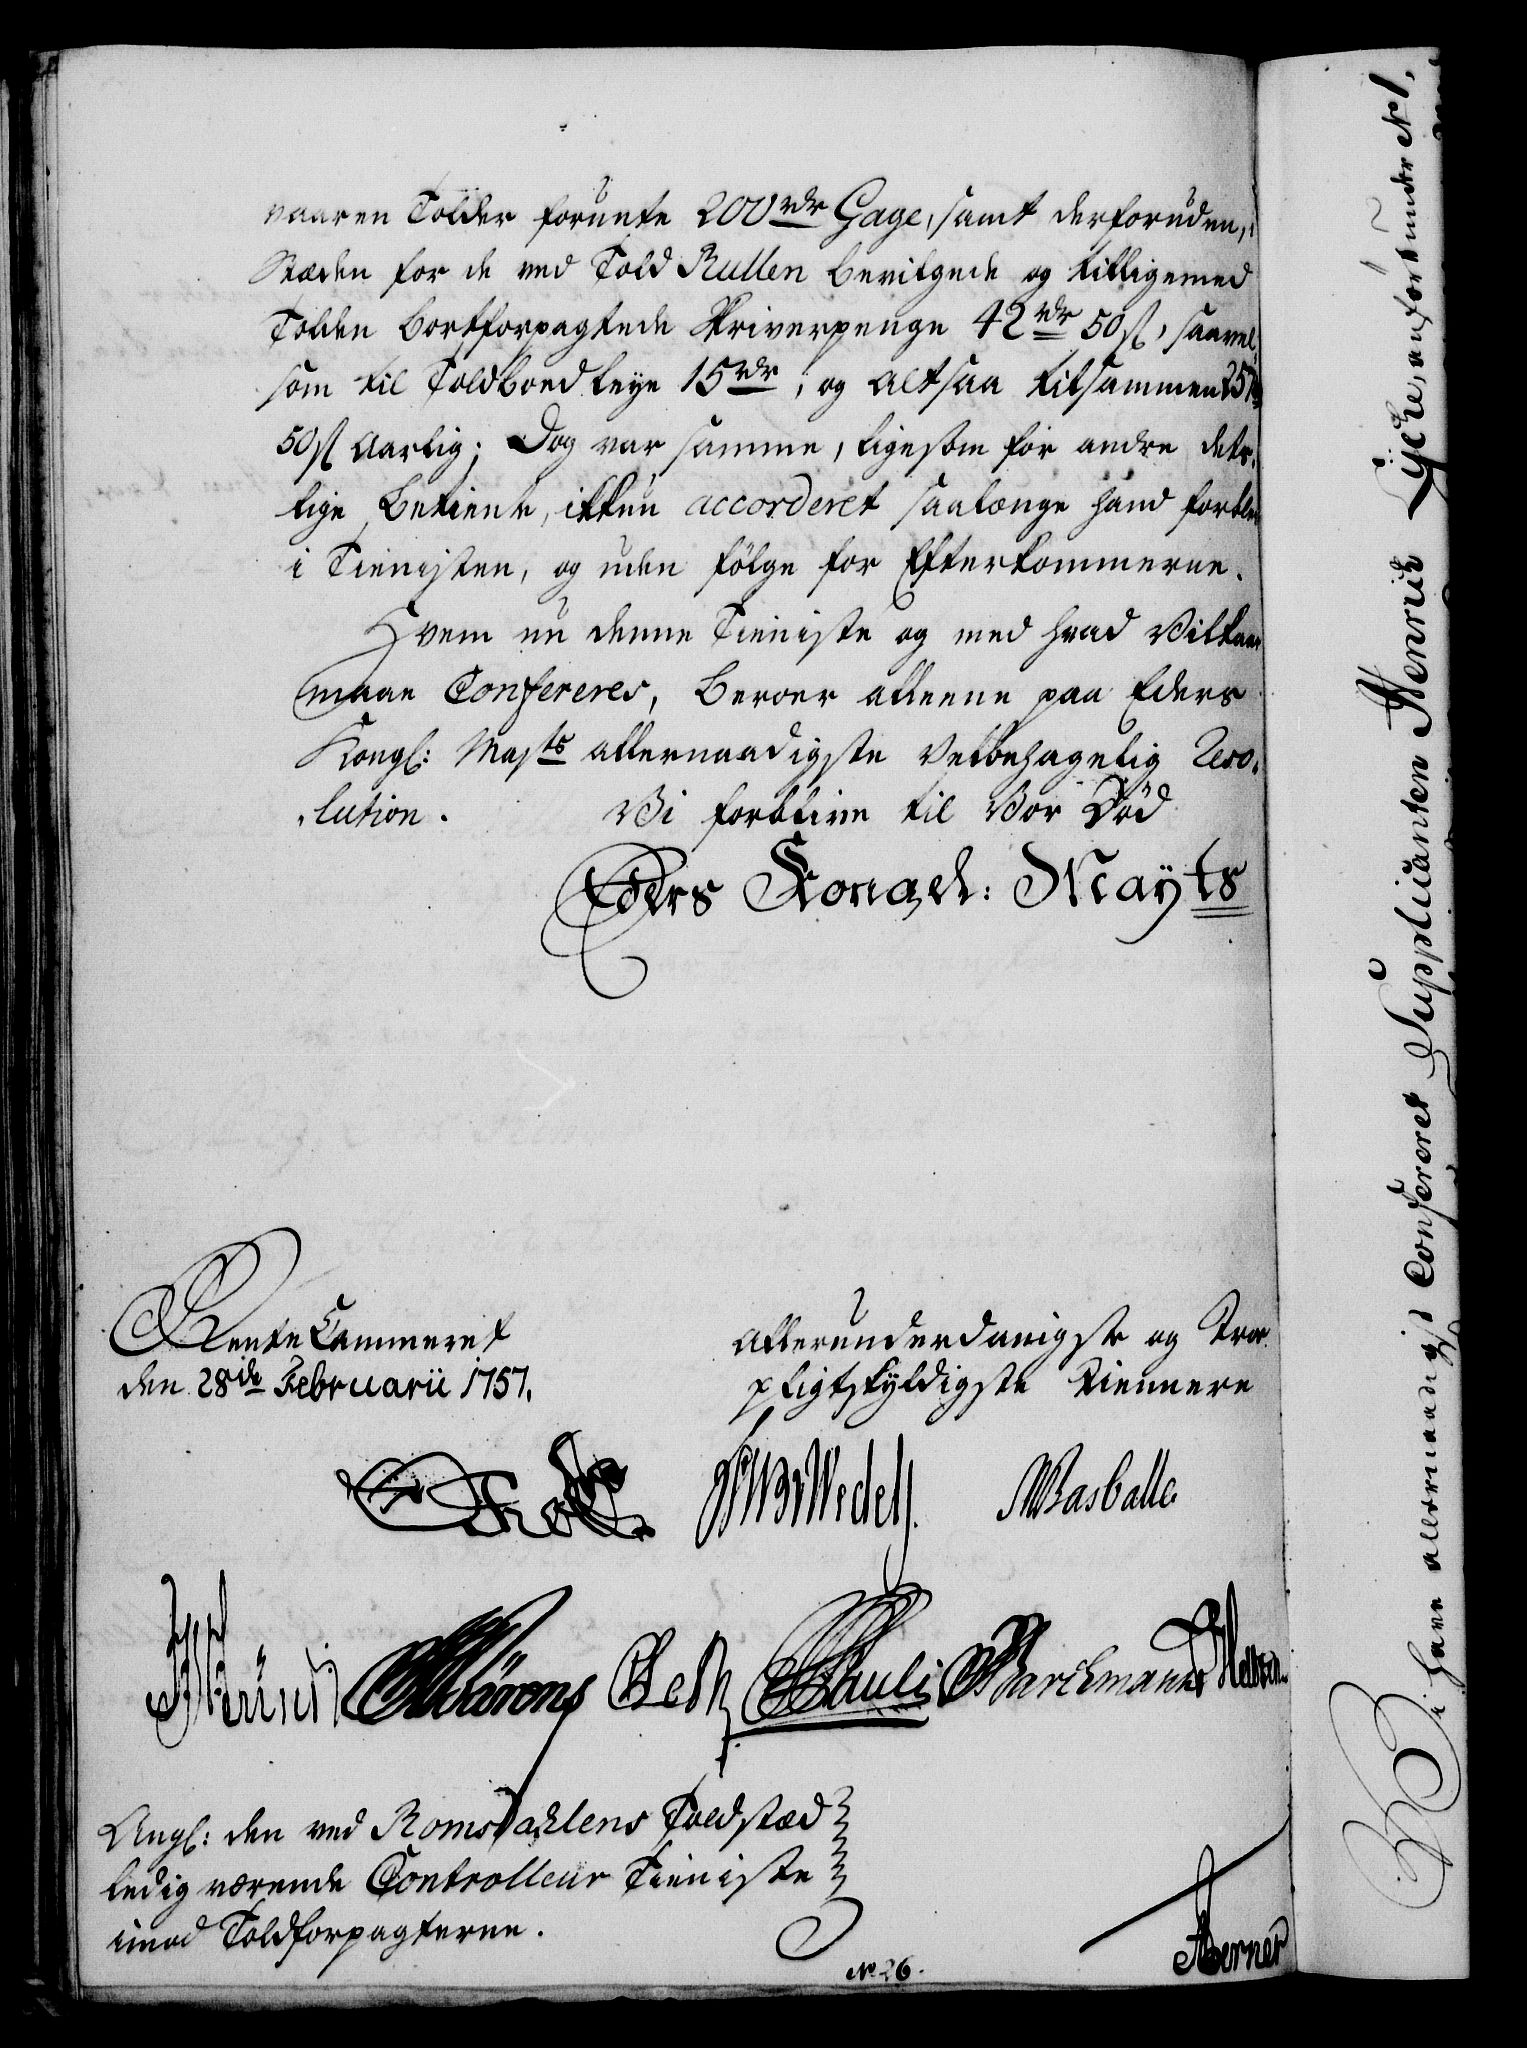 vaaren Tolder forunte 200 rdr Gage, samt derforuden, i
Stæden for de ved Told Rullen bevilgede og tilligemed
Tolden bortforpagtede Skriverpenge 42 rdr 50 s/, saavel
som til Toldboed leye 15 rdr, og altsaa tilsammen 257
50 s/ aarlig; Dog var samme, ligesom for andre dets-
lige Betiente, ikkun accorderet saalænge hand forblev
i Tienisten, og uden følge for Efterkommerne.
Hvem nu denne Tieniste og med hvad Vilkaar
maae Confereres, beroer alleene paa Eders
Kongl: Mayts allernaadigste Velbehagelig Reso-
lution. Vi forblive til Vor Død
Eders Kongel: Mayts
Rente Cammeret
den 28de Februarii 1757.
Allerunderdanigste og Troe
pligtskyldigste Tiennere
Wedell.
Rasballe.
Pauli Barckmann
Angl: den ved Romsdahlens Toldstæd
ledig værende Controlleur Tieniste
imod Toldforpagterne.
No 26.
Berner
Vi have allernaadigst Confereret Supplicanten Henrich Lycke, anført under No 1,